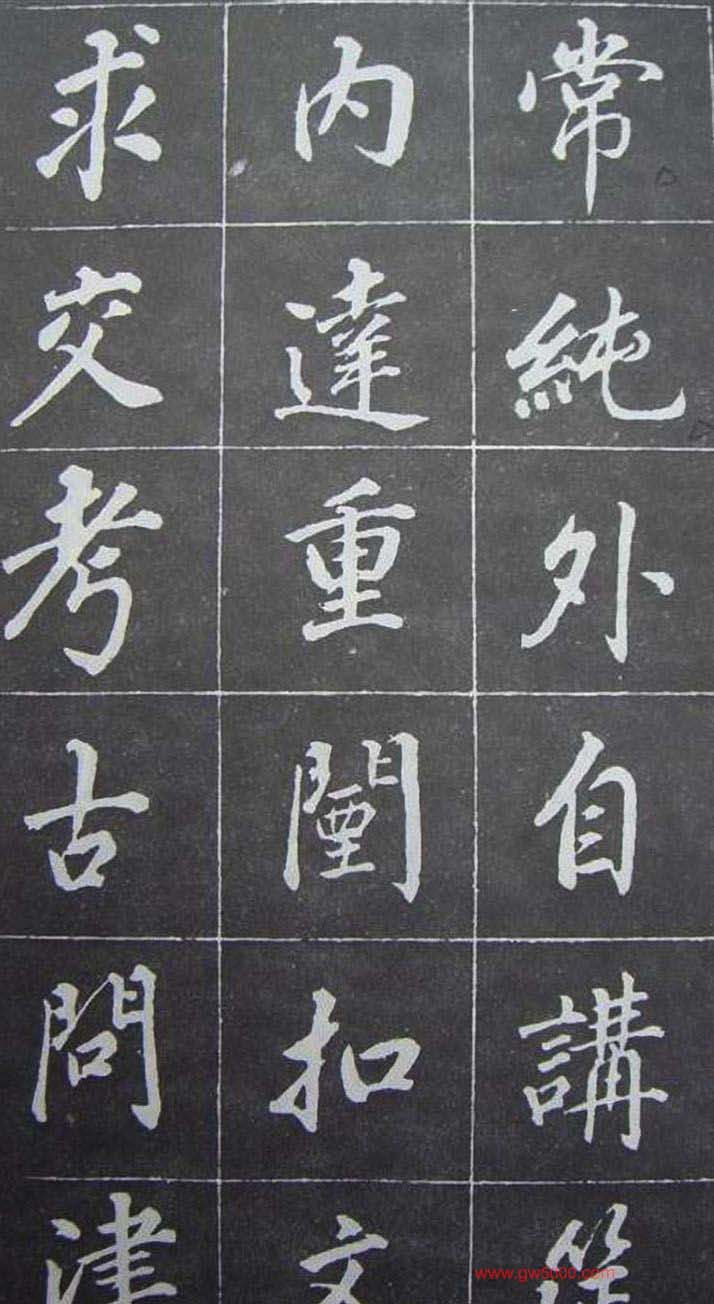 常純外自講筵
内達重闉扣文
求交考古問津
www.gw5000.com